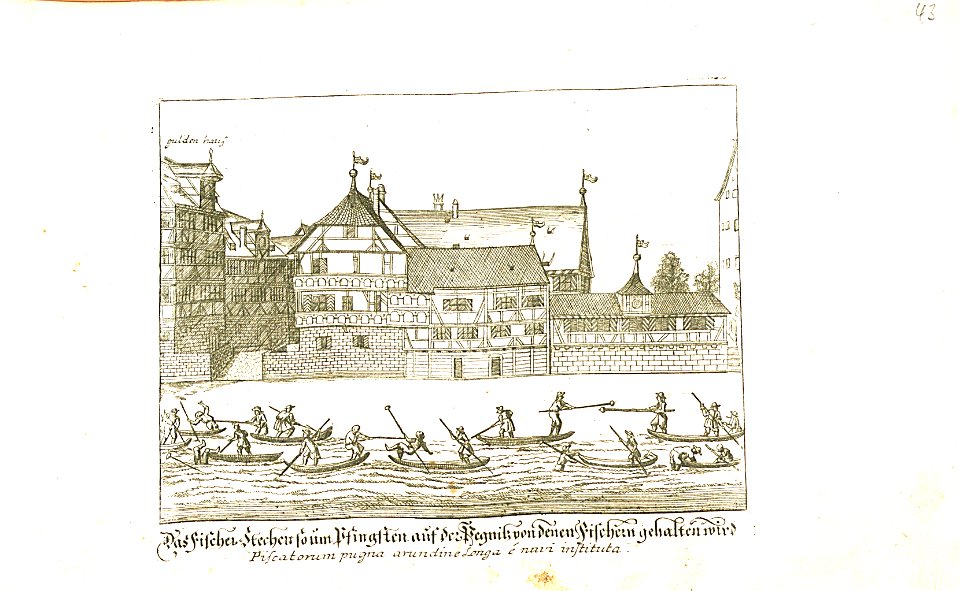 43
gulden hauß
Das Fischer-Stechen so um Pfingsten auf der Pegnitz von denen Fischern gehalten wird
Piscatorum pugna arundine longa è navi instituta.